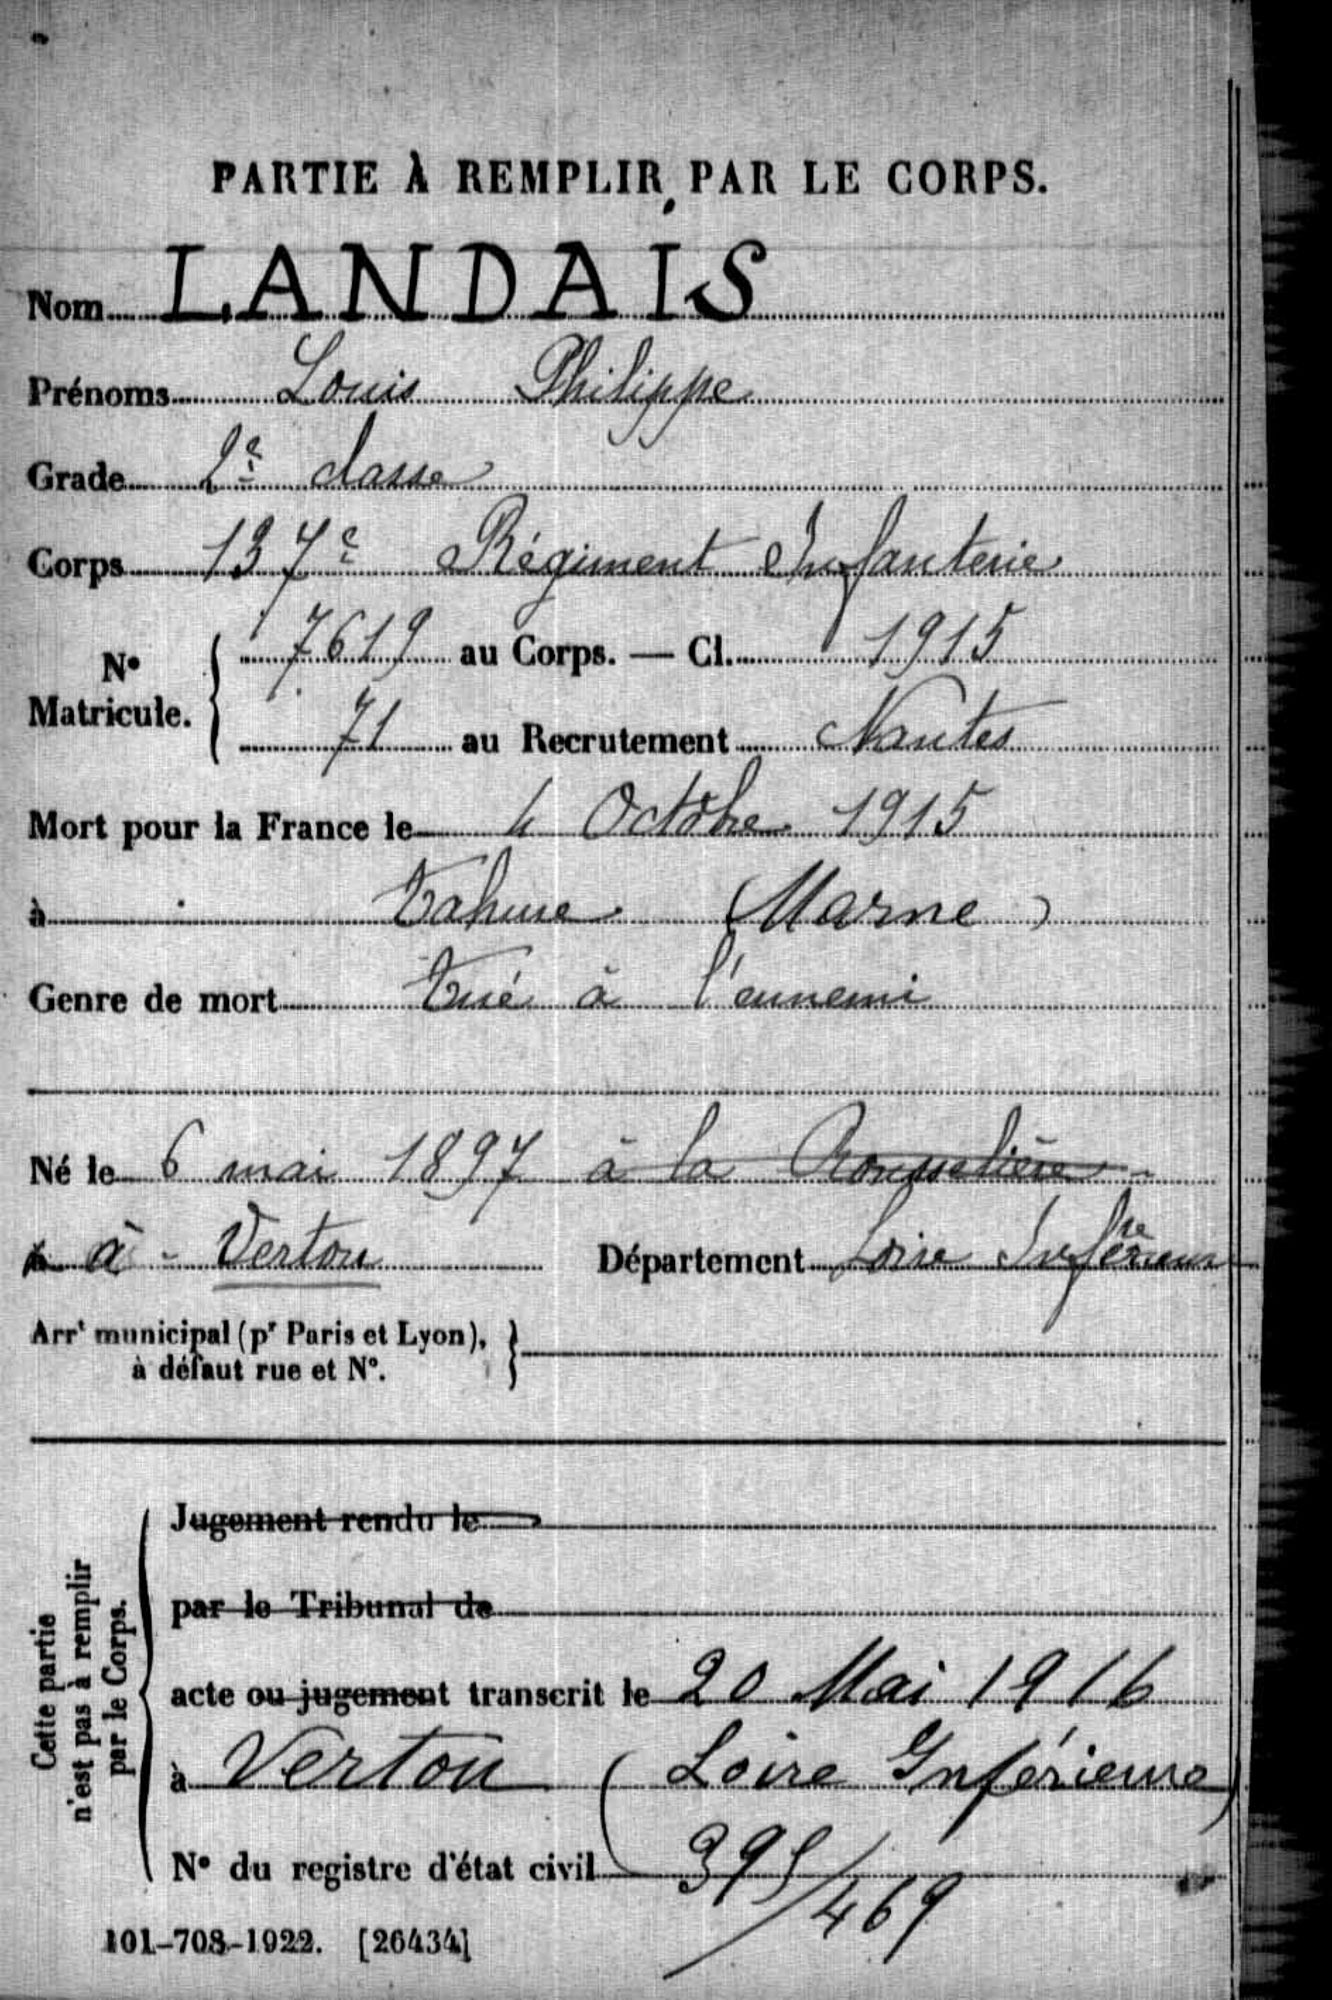 PARTIE À REMPLIR PAR LE CORPS.
Nom LANDAIS
Prénoms Louis Philippe
Grade 2e classe
Corps 137e Régiment Infanterie
No Matricule. 7619 au Corps. — Cl. 1915
71 au Recrutement Nantes
Mort pour la France le 4 Octobre 1915
à Tahure (Marne)
Genre de mort Tué à l'ennemi
Né le 6 mai 1897 à la
à - Vertou Département Loire Inférieure
Arrt municipal (pr Paris et Lyon),
à défaut rue et No.
Cette partie
n'est pas à remplir
par le Corps.
Jugement rendu le
par le Tribunal de
acte ou jugement transcrit le 20 Mai 1916
à Vertou (Loire Inférieure)
No du registre d'état civil 395/469
101-708-1922. [26434]